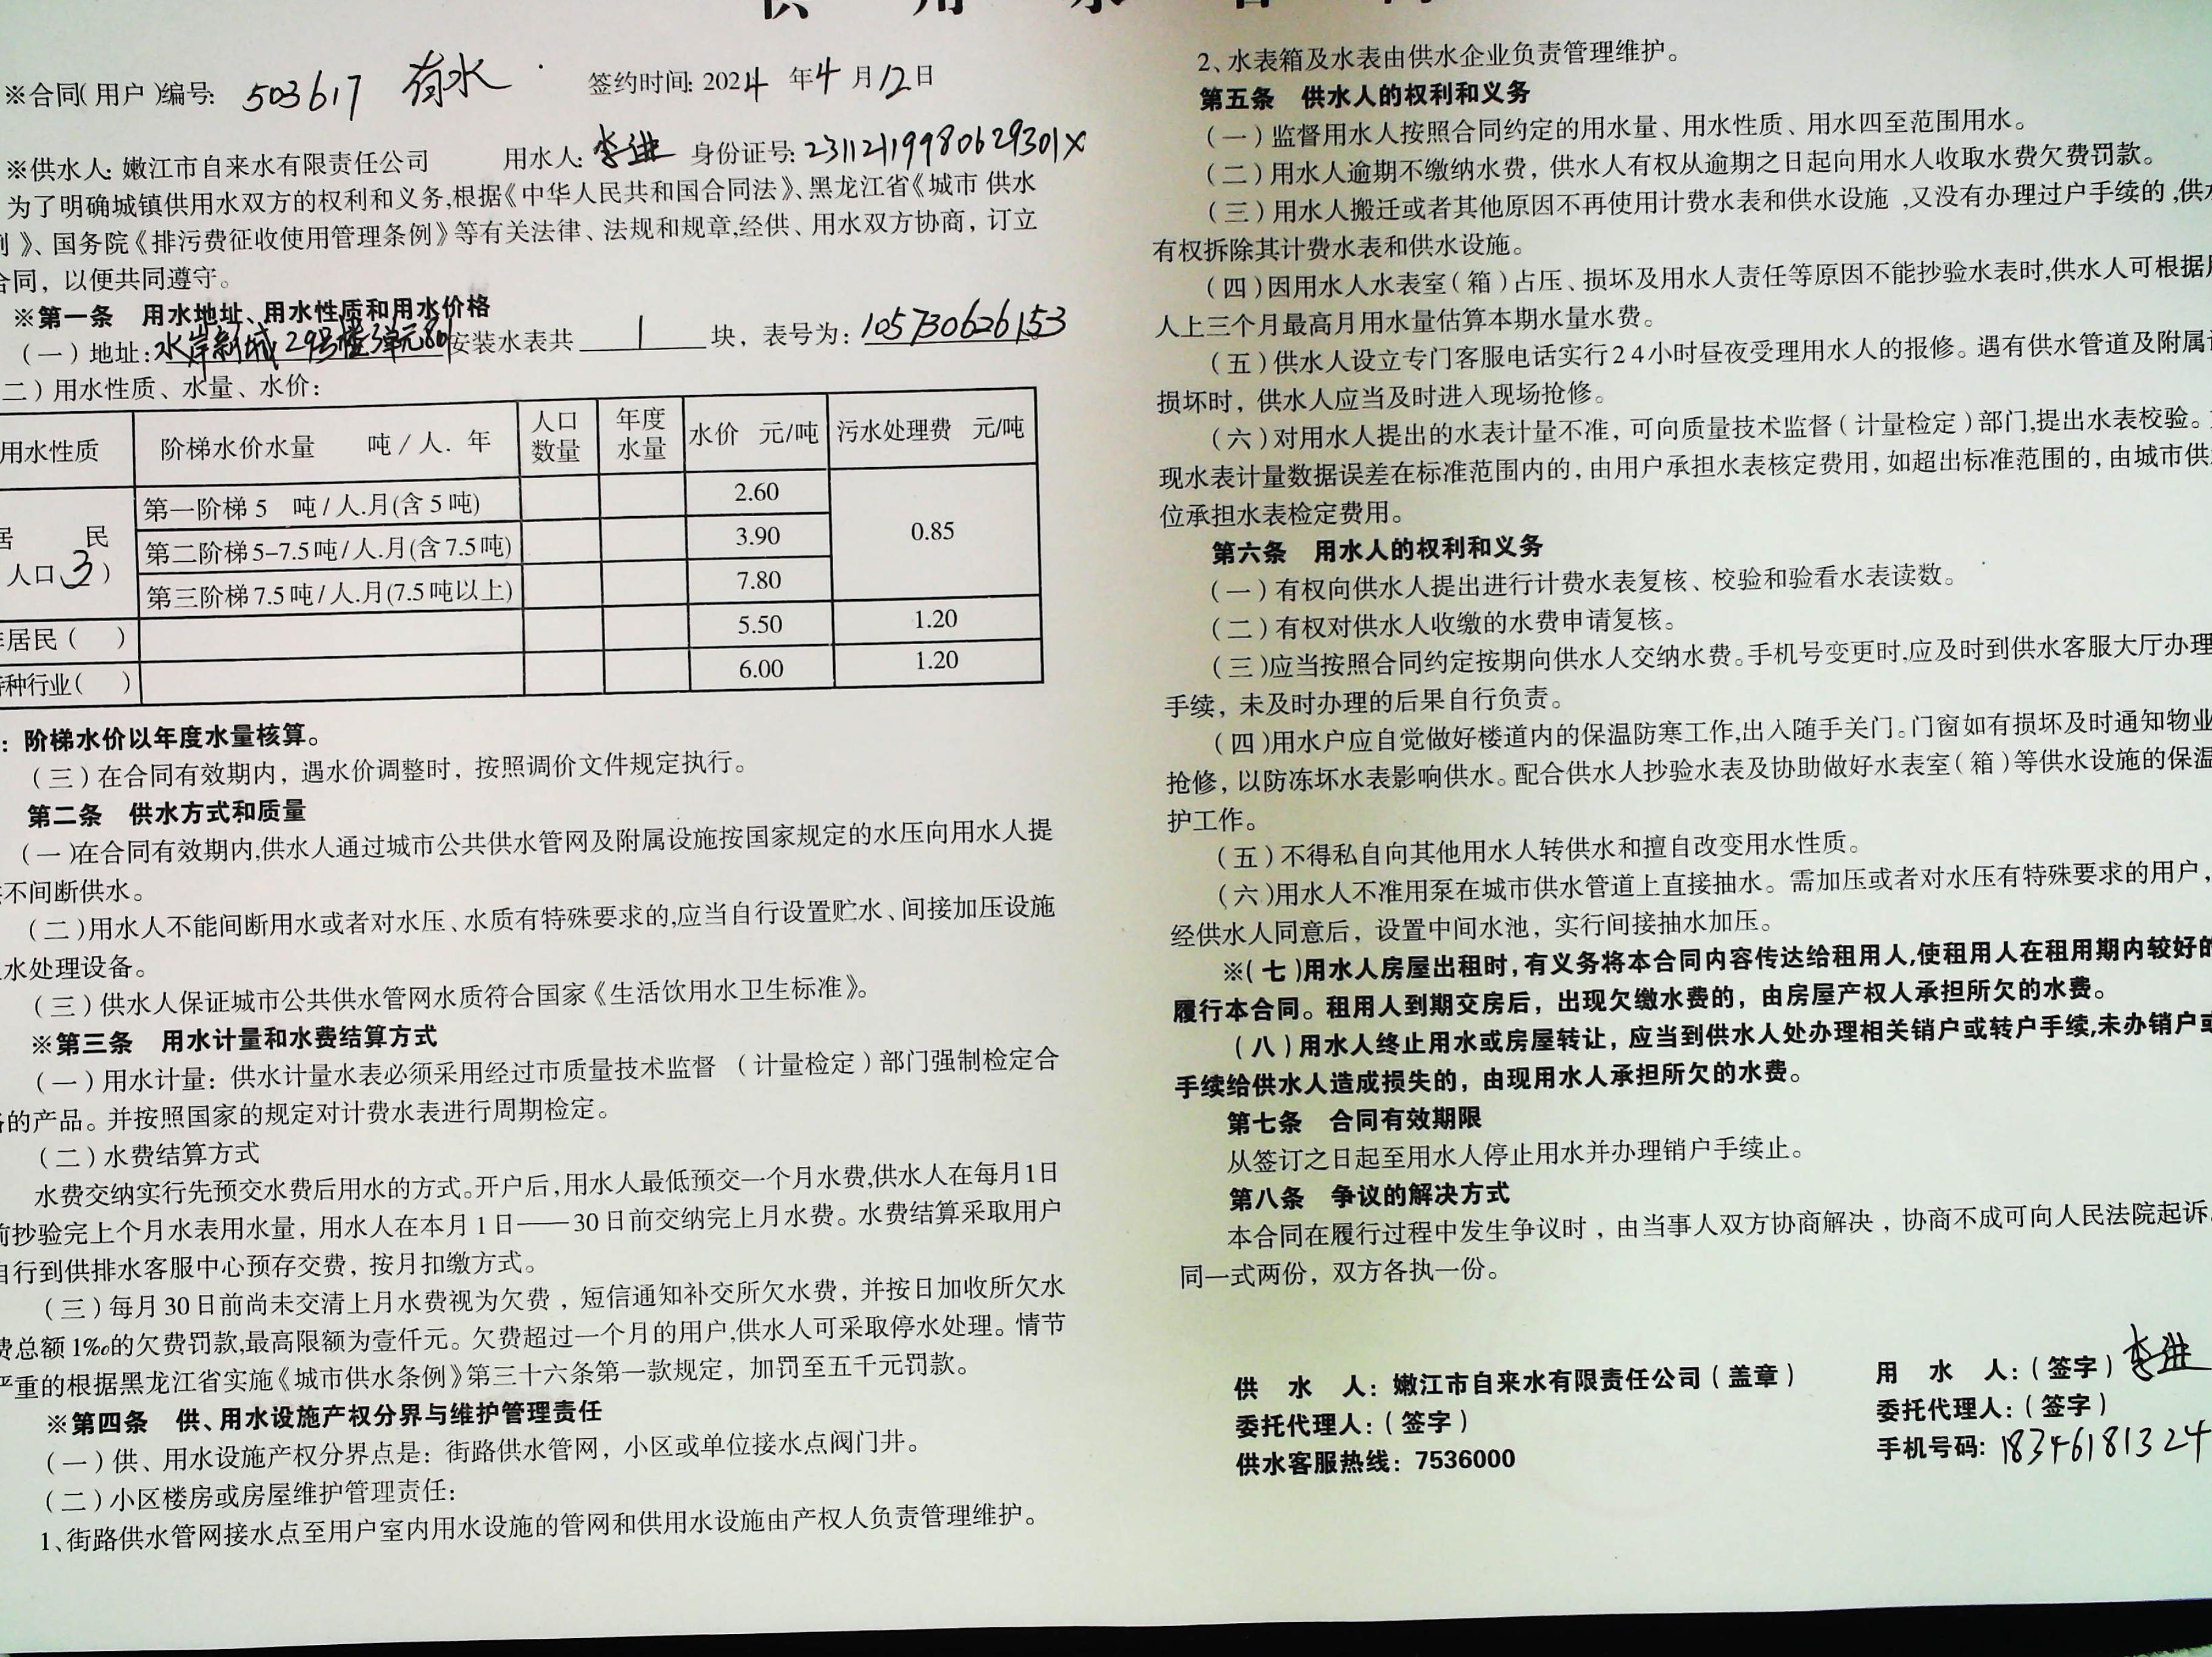 供 用 水 合 同
※合同(用户)编号: 503617 有水
签约时间: 2024 年 4 月 12 日
※供水人: 嫩江市自来水有限责任公司 用水人: 李进 身份证号: 23112119980629301X
为了明确城镇供用水双方的权利和义务,根据《中华人民共和国合同法》、黑龙江省《城市 供水
》、国务院《排污费征收使用管理条例》等有关法律、法规和规章,经供、用水双方协商，订立
合同，以便共同遵守。
※第一条 用水地址、用水性质和用水价格
(一)地址: 水岸新城 29号楼3单元801 安装水表共 1 块，表号为: 105730626153
二)用水性质、水量、水价:
用水性质 阶梯水价水量 吨/人. 年 人口数量 年度水量 水价 元/吨 污水处理费 元/吨
居 民
人口 3 )
第一阶梯 5 吨/人.月(含 5 吨) 2.60 0.85
第二阶梯 5-7.5吨/人.月(含 7.5吨) 3.90
第三阶梯 7.5吨/人.月(7.5吨以上) 7.80
居民( ) 5.50 1.20
种行业( ) 6.00 1.20
: 阶梯水价以年度水量核算。
(三)在合同有效期内，遇水价调整时，按照调价文件规定执行。
第二条 供水方式和质量
(一)在合同有效期内,供水人通过城市公共供水管网及附属设施按国家规定的水压向用水人提
不间断供水。
(二)用水人不能间断用水或者对水压、水质有特殊要求的,应当自行设置贮水、间接加压设施
水处理设备。
(三)供水人保证城市公共供水管网水质符合国家《生活饮用水卫生标准》。
※第三条 用水计量和水费结算方式
(一)用水计量: 供水计量水表必须采用经过市质量技术监督 (计量检定)部门强制检定合
的产品。并按照国家的规定对计费水表进行周期检定。
(二)水费结算方式
水费交纳实行先预交水费后用水的方式。开户后,用水人最低预交一个月水费,供水人在每月1日
前抄验完上个月水表用水量，用水人在本月 1 日——30 日前交纳完上月水费。水费结算采取用户
自行到供排水客服中心预存交费，按月扣缴方式。
(三)每月 30 日前尚未交清上月水费视为欠费，短信通知补交所欠水费，并按日加收所欠水
费总额 1‰的欠费罚款,最高限额为壹仟元。欠费超过一个月的用户,供水人可采取停水处理。情节
严重的根据黑龙江省实施《城市供水条例》第三十六条第一款规定，加罚至五千元罚款。
※第四条 供、用水设施产权分界与维护管理责任
(一)供、用水设施产权分界点是: 街路供水管网，小区或单位接水点阀门井。
(二)小区楼房或房屋维护管理责任:
1、街路供水管网接水点至用户室内用水设施的管网和供用水设施由产权人负责管理维护。
2、水表箱及水表由供水企业负责管理维护。
第五条 供水人的权利和义务
(一)监督用水人按照合同约定的用水量、用水性质、用水四至范围用水。
(二)用水人逾期不缴纳水费，供水人有权从逾期之日起向用水人收取水费欠费罚款。
(三)用水人搬迁或者其他原因不再使用计费水表和供水设施 ,又没有办理过户手续的,供水
有权拆除其计费水表和供水设施。
(四)因用水人水表室(箱)占压、损坏及用水人责任等原因不能抄验水表时,供水人可根据用
人上三个月最高月用水量估算本期水量水费。
(五)供水人设立专门客服电话实行24小时昼夜受理用水人的报修。遇有供水管道及附属设
损坏时，供水人应当及时进入现场抢修。
(六)对用水人提出的水表计量不准，可向质量技术监督(计量检定)部门,提出水表校验。
现水表计量数据误差在标准范围内的，由用户承担水表核定费用，如超出标准范围的，由城市供
位承担水表检定费用。
第六条 用水人的权利和义务
(一)有权向供水人提出进行计费水表复核、校验和验看水表读数。
(二)有权对供水人收缴的水费申请复核。
(三)应当按照合同约定按期向供水人交纳水费。手机号变更时,应及时到供水客服大厅办理
手续，未及时办理的后果自行负责。
(四)用水户应自觉做好楼道内的保温防寒工作,出入随手关门。门窗如有损坏及时通知物业
抢修，以防冻坏水表影响供水。配合供水人抄验水表及协助做好水表室(箱)等供水设施的保温
护工作。
(五)不得私自向其他用水人转供水和擅自改变用水性质。
(六)用水人不准用泵在城市供水管道上直接抽水。需加压或者对水压有特殊要求的用户，
经供水人同意后，设置中间水池，实行间接抽水加压。
※(七)用水人房屋出租时,有义务将本合同内容传达给租用人,使租用人在租用期内较好的
履行本合同。租用人到期交房后，出现欠缴水费的，由房屋产权人承担所欠的水费。
(八)用水人终止用水或房屋转让，应当到供水人处办理相关销户或转户手续,未办销户或
手续给供水人造成损失的，由现用水人承担所欠的水费。
第七条 合同有效期限
从签订之日起至用水人停止用水并办理销户手续止。
第八条 争议的解决方式
本合同在履行过程中发生争议时，由当事人双方协商解决，协商不成可向人民法院起诉。
同一式两份，双方各执一份。
供 水 人: 嫩江市自来水有限责任公司(盖章) 用 水 人:(签字) 李进
委托代理人:(签字) 委托代理人:(签字)
供水客服热线: 7536000 手机号码: 18346181324